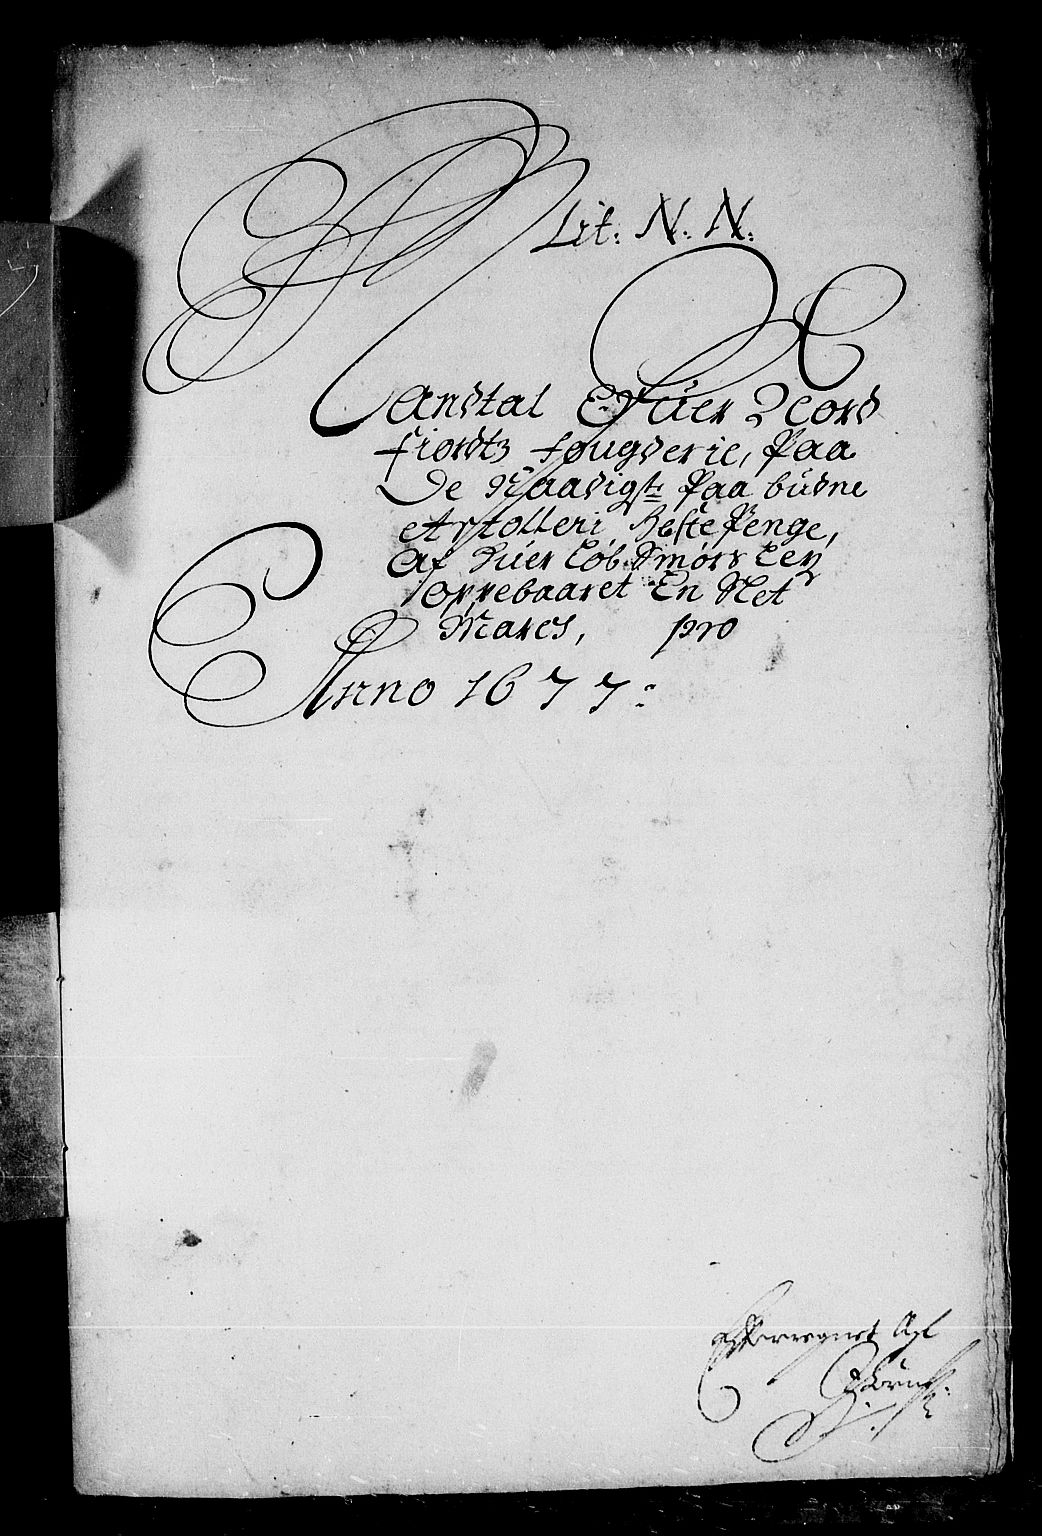 Lit: N. N.
Mandtal Ofuer Nord
fiordtz fougderie, Paa
De Naadigste Paa budne
Artolleri Heste Penge,
Af huer Løb Smørs Ley
Oppebaaret En Ret
Marck, pro
Anno 1677:
Efterregnet